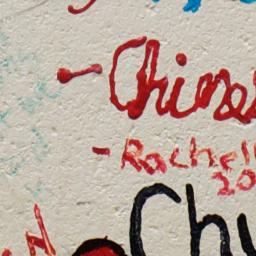 - Chines
- Rachell
20
Chu